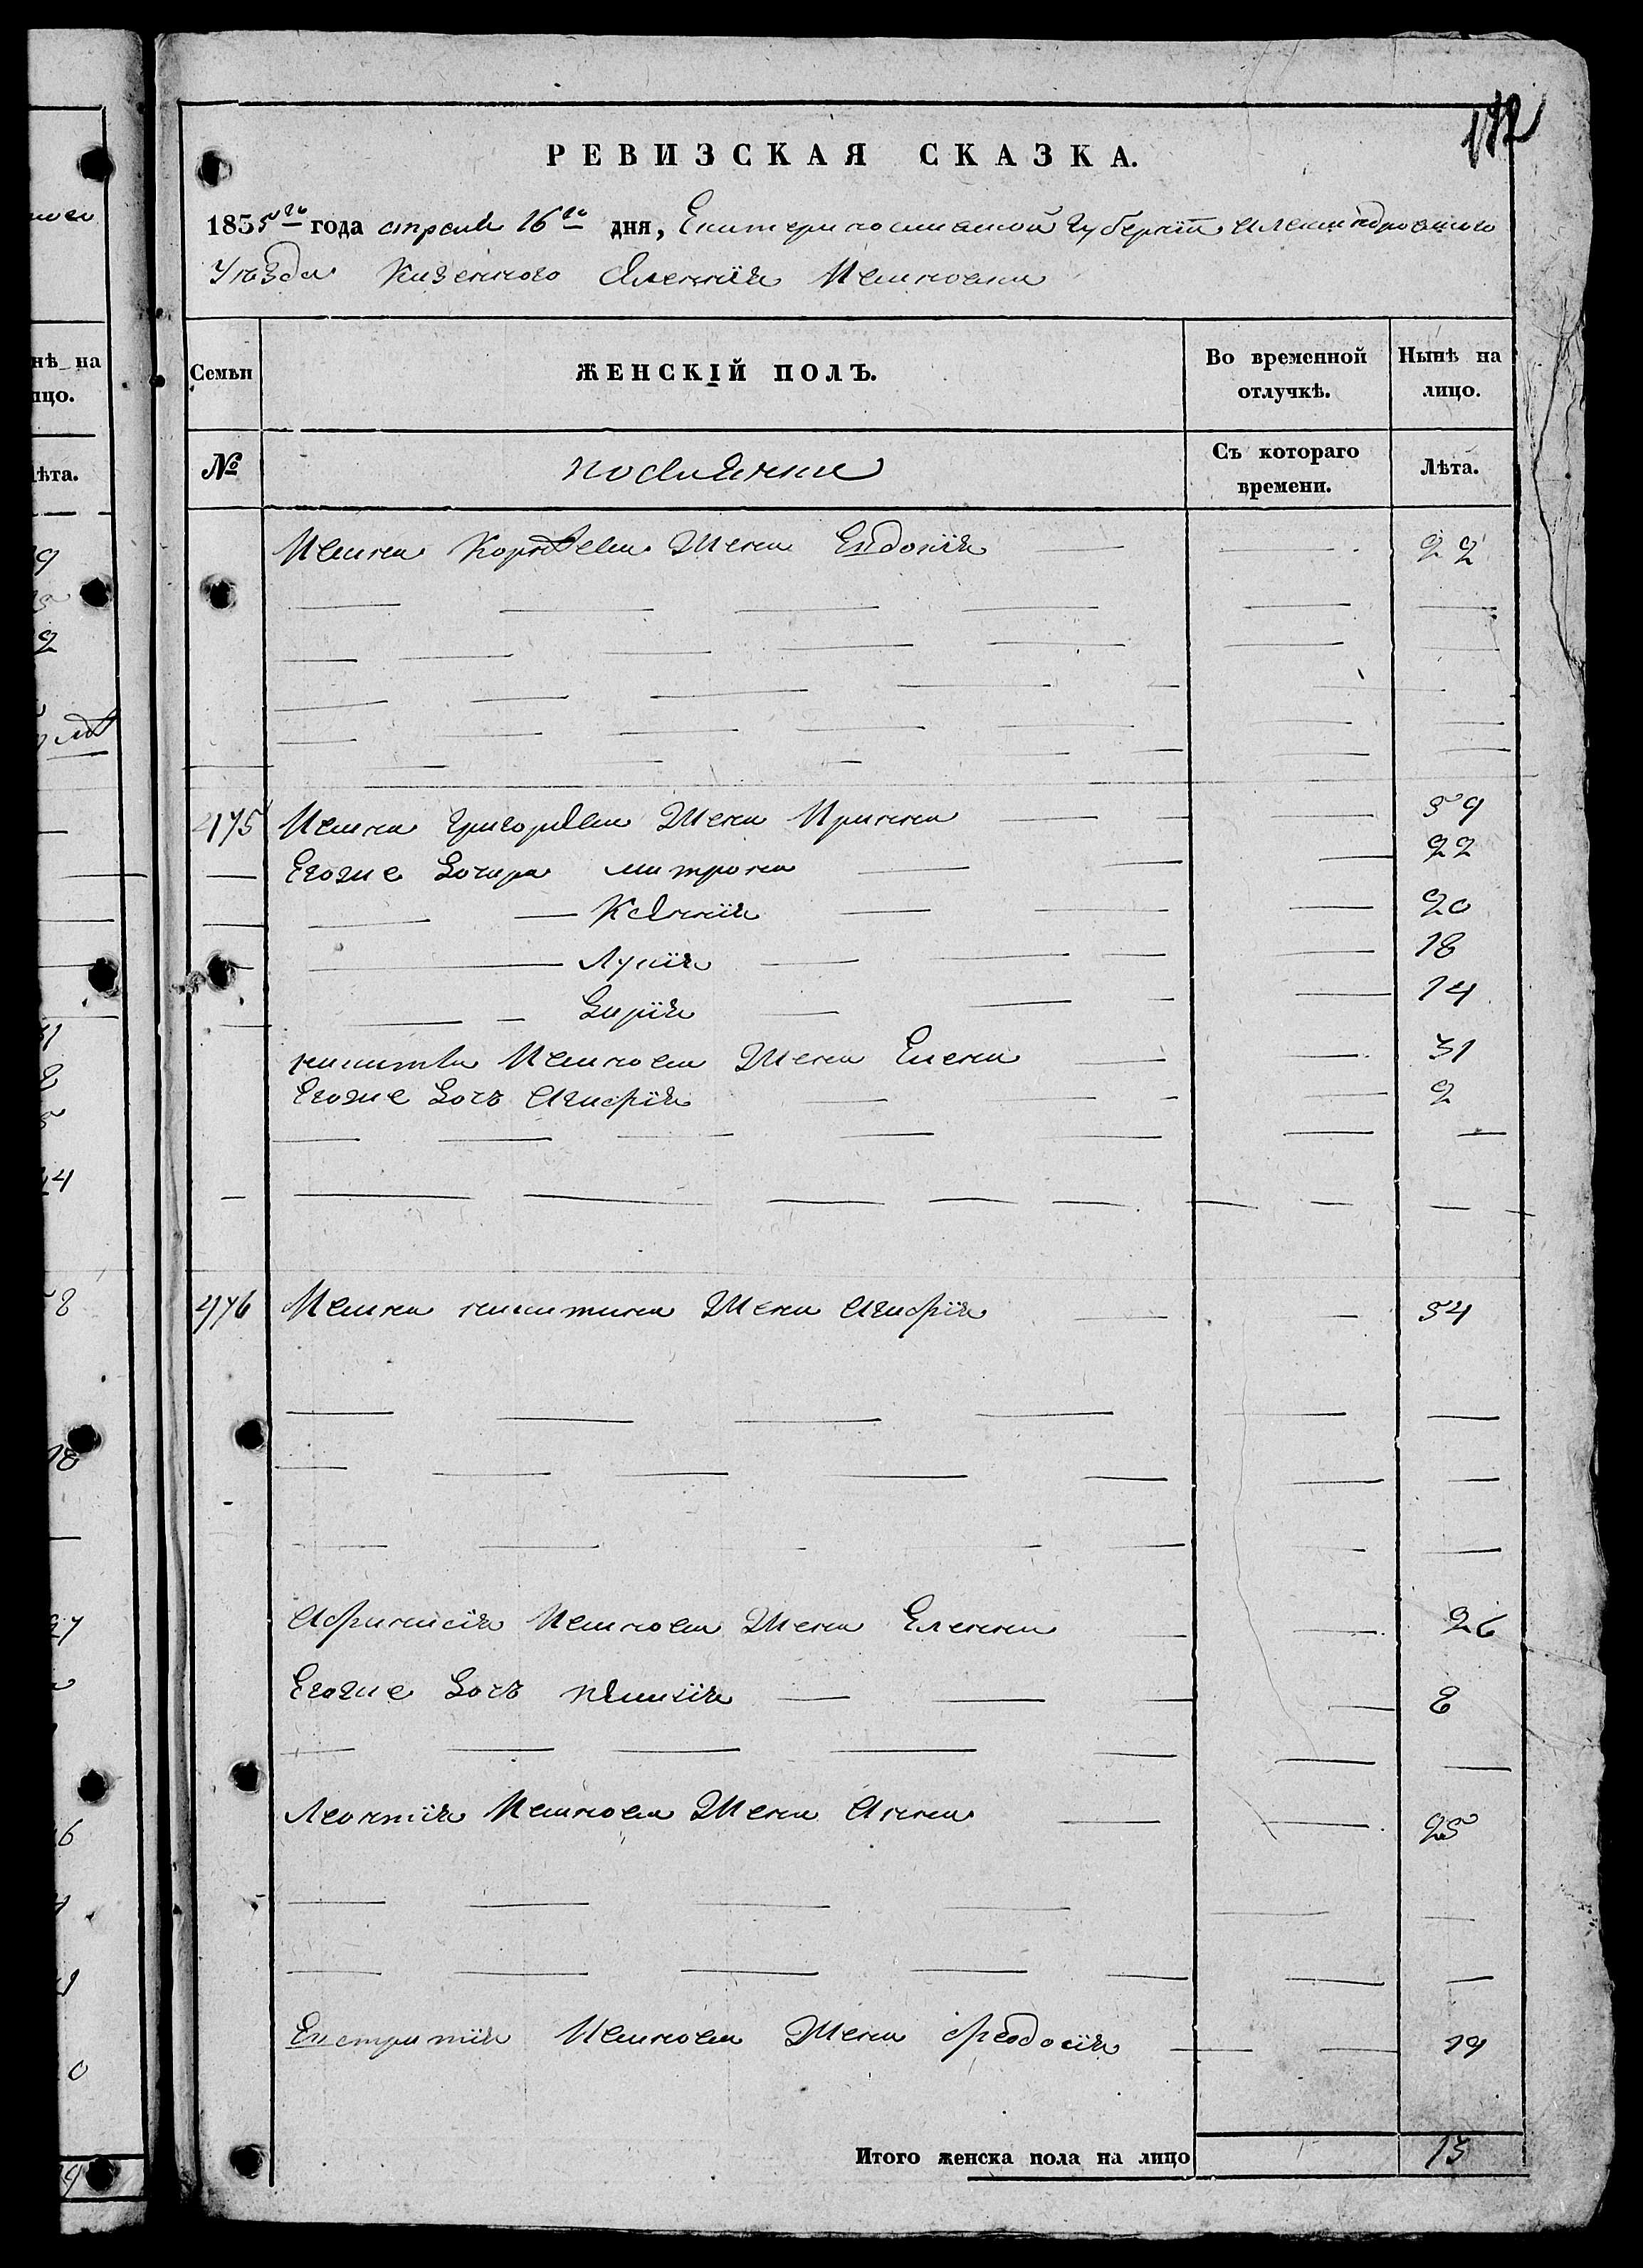 172
РЕВИЗСКАЯ СКАЗКА.
1855го года апреля 16го дня, Екатеринославской губернiи Александровского
Уезда Казенного Селения Ивановки
Семьи
ЖЕНСКІЙ ПОЛЪ.
Во временной отлучкѣ.
Нынѣ на лицо.
№
поселянки
Съ котораго времени.
Лѣта.
Ивана Корнѣева Жена Евдокiя 22
475 Ивана Григорьева Жена Иринна 59
Егоже Дочери Матрона 22
Ксенiя 20
Лукiя 18
Дарiя 14
никиты Иванова Жена Елена 31
Егоже Дочъ Агафiя 2
476 Ивана никитина Жена Агафiя 54
Афанасiя Иванова Жена Еленна 26
Егоже Дочъ 8
Леонтiя Иванова Жена Анна 25
Евстратiя Иванова Жена Феодосiя 19
Итого женска пола на лицо 13
нѣ на
ицо.
ѣта.